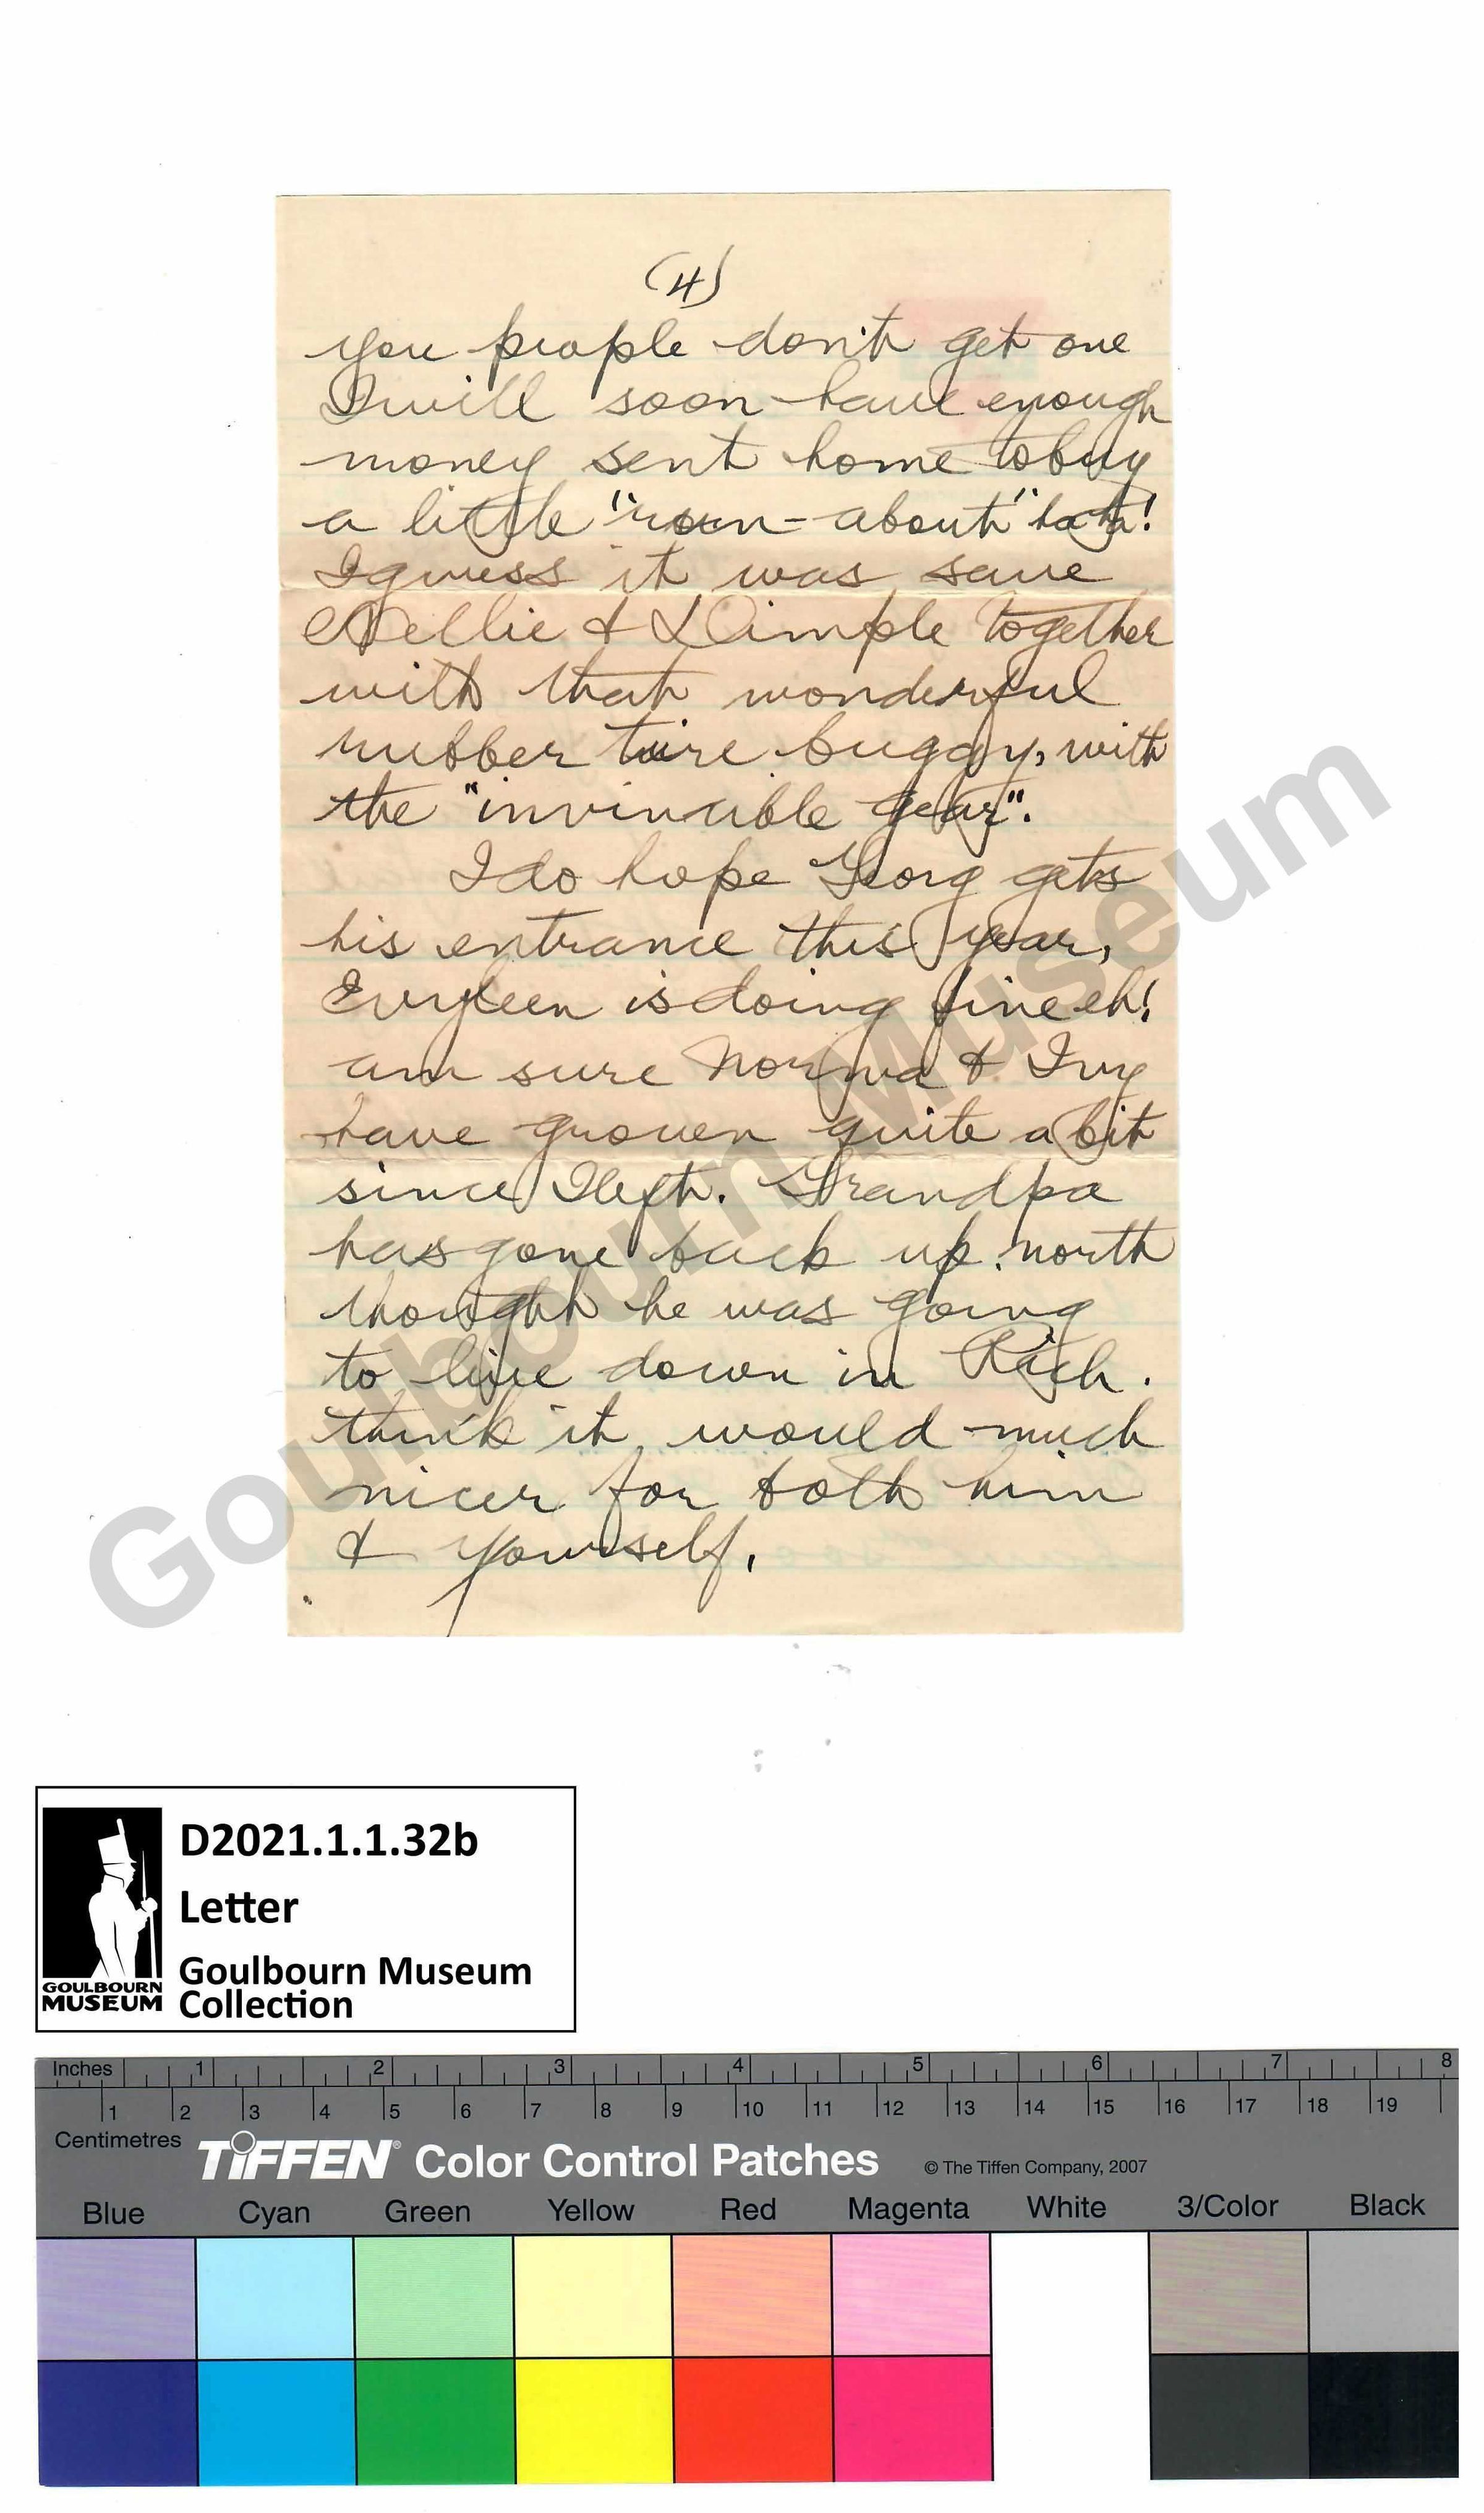 (4)
you people don't get one
I will soon have enough
money sent home to buy
a little "roun-about" ha ha!
I guess it was save
Nellie & Dimple together
with that wonderful
rubber tire buggy, with
the "invincible gear".
I do hope Georg gets
his entrance this year,
Evyleen is doing fine eh!
am sure Norma & Ivy
have growen quite a bit
since I left. Grandpa
has gone back up north
thought he was going
to live down in Rich.
think it would much
nicer for both him
& yourself.
Goulbourn Museum
D2021.1.1.32b
Letter
Goulbourn Museum
Collection
GOULBOURN
MUSEUM
Inches 1 2 3 4 5 6 7 8
1 2 3 4 5 6 7 8 9 10 11 12 13 14 15 16 17 18 19
Centimetres
TIFFEN® Color Control Patches © The Tiffen Company, 2007
Blue Cyan Green Yellow Red Magenta White 3/Color Black